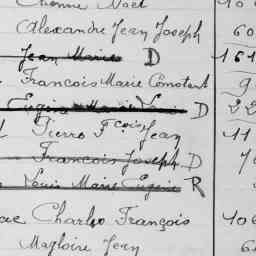 Etienne Noël
Alexandre Jean Joseph 60
Jean Marie D 161
François Marie Constant 9
Eugène Marie Louis D 22
Pierre Fçois Jean 11
François Joseph D 7
Louis Marie Eugène R
Charles François 106
Magloire Jean 6